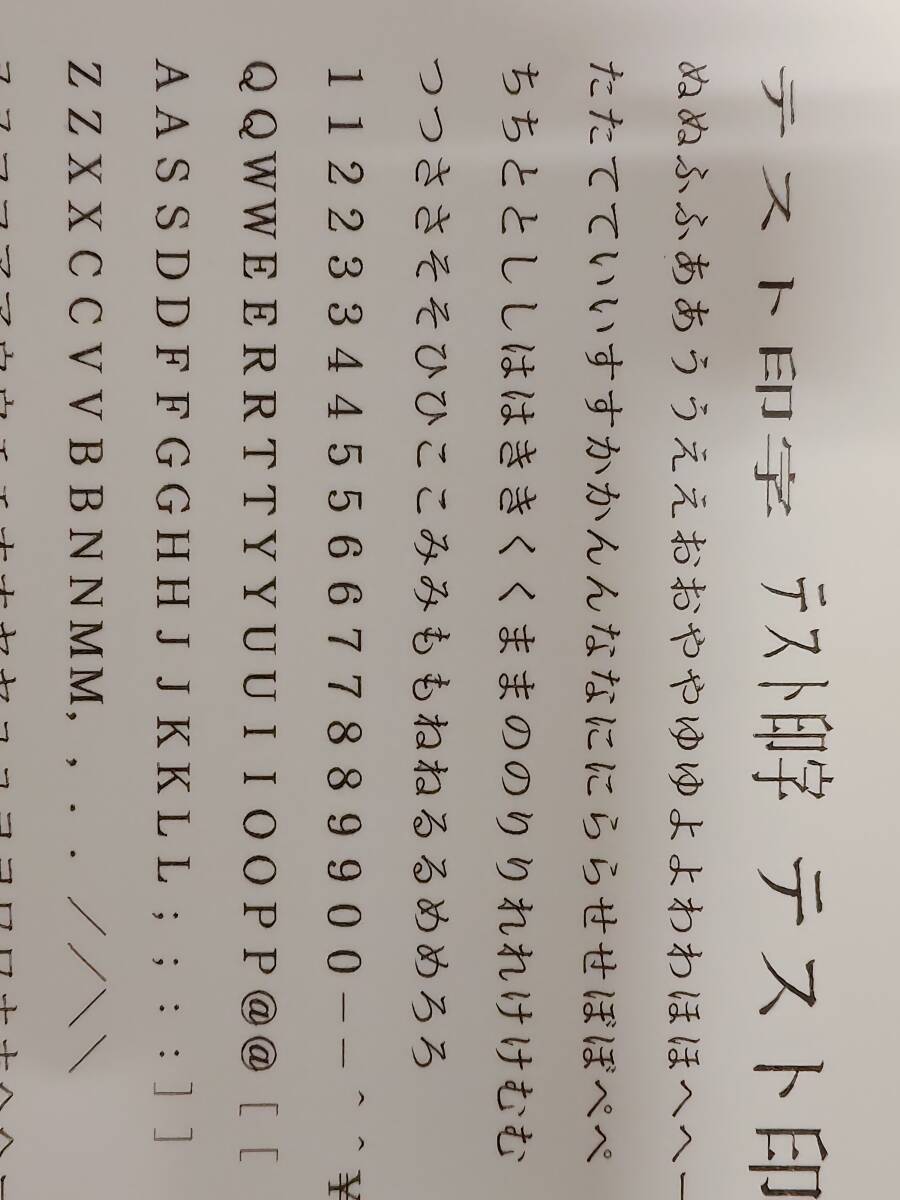 テスト印字 テスト印字 テスト印
ぬぬふふああううええおおややゆゆよよわわほほへへー
たたてていいすすかかんんななににららせせぼぼぺぺ
ちちととししははききくくままののりりれれけけむむ
つつささそそひひここみみももねねるるめめろろ
11223344556677889900--^^¥
QQWWEERRTTYYUUIIOOPP@@[[
AASSDDFFGGHHJJKKLL;;::]]
ZZXXCCVVBBNNMM,,..//\\